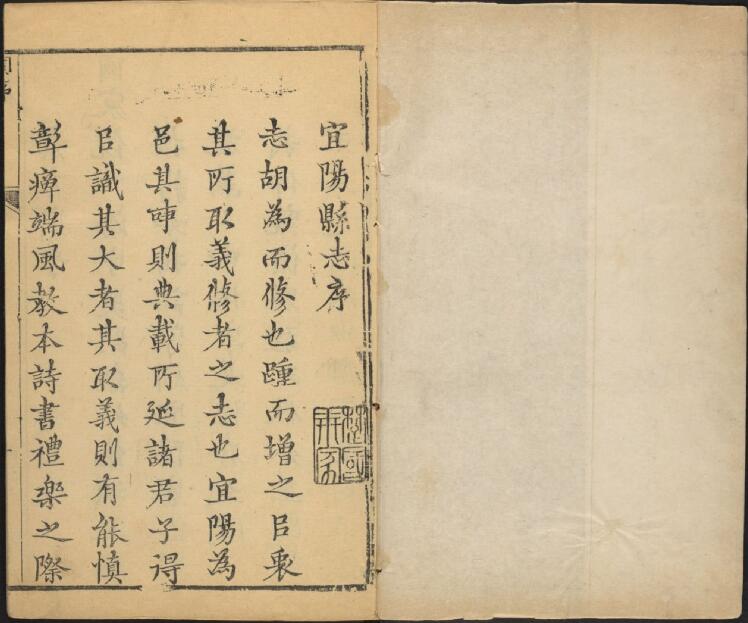 宜陽縣志序
志胡為而修也踵而增之㠯乘
其所取義修者之志也宜陽為
邑其時則典載所延諸君子得
㠯識其大者其取義則有能慎
彰癉端風教本詩書禮樂之際